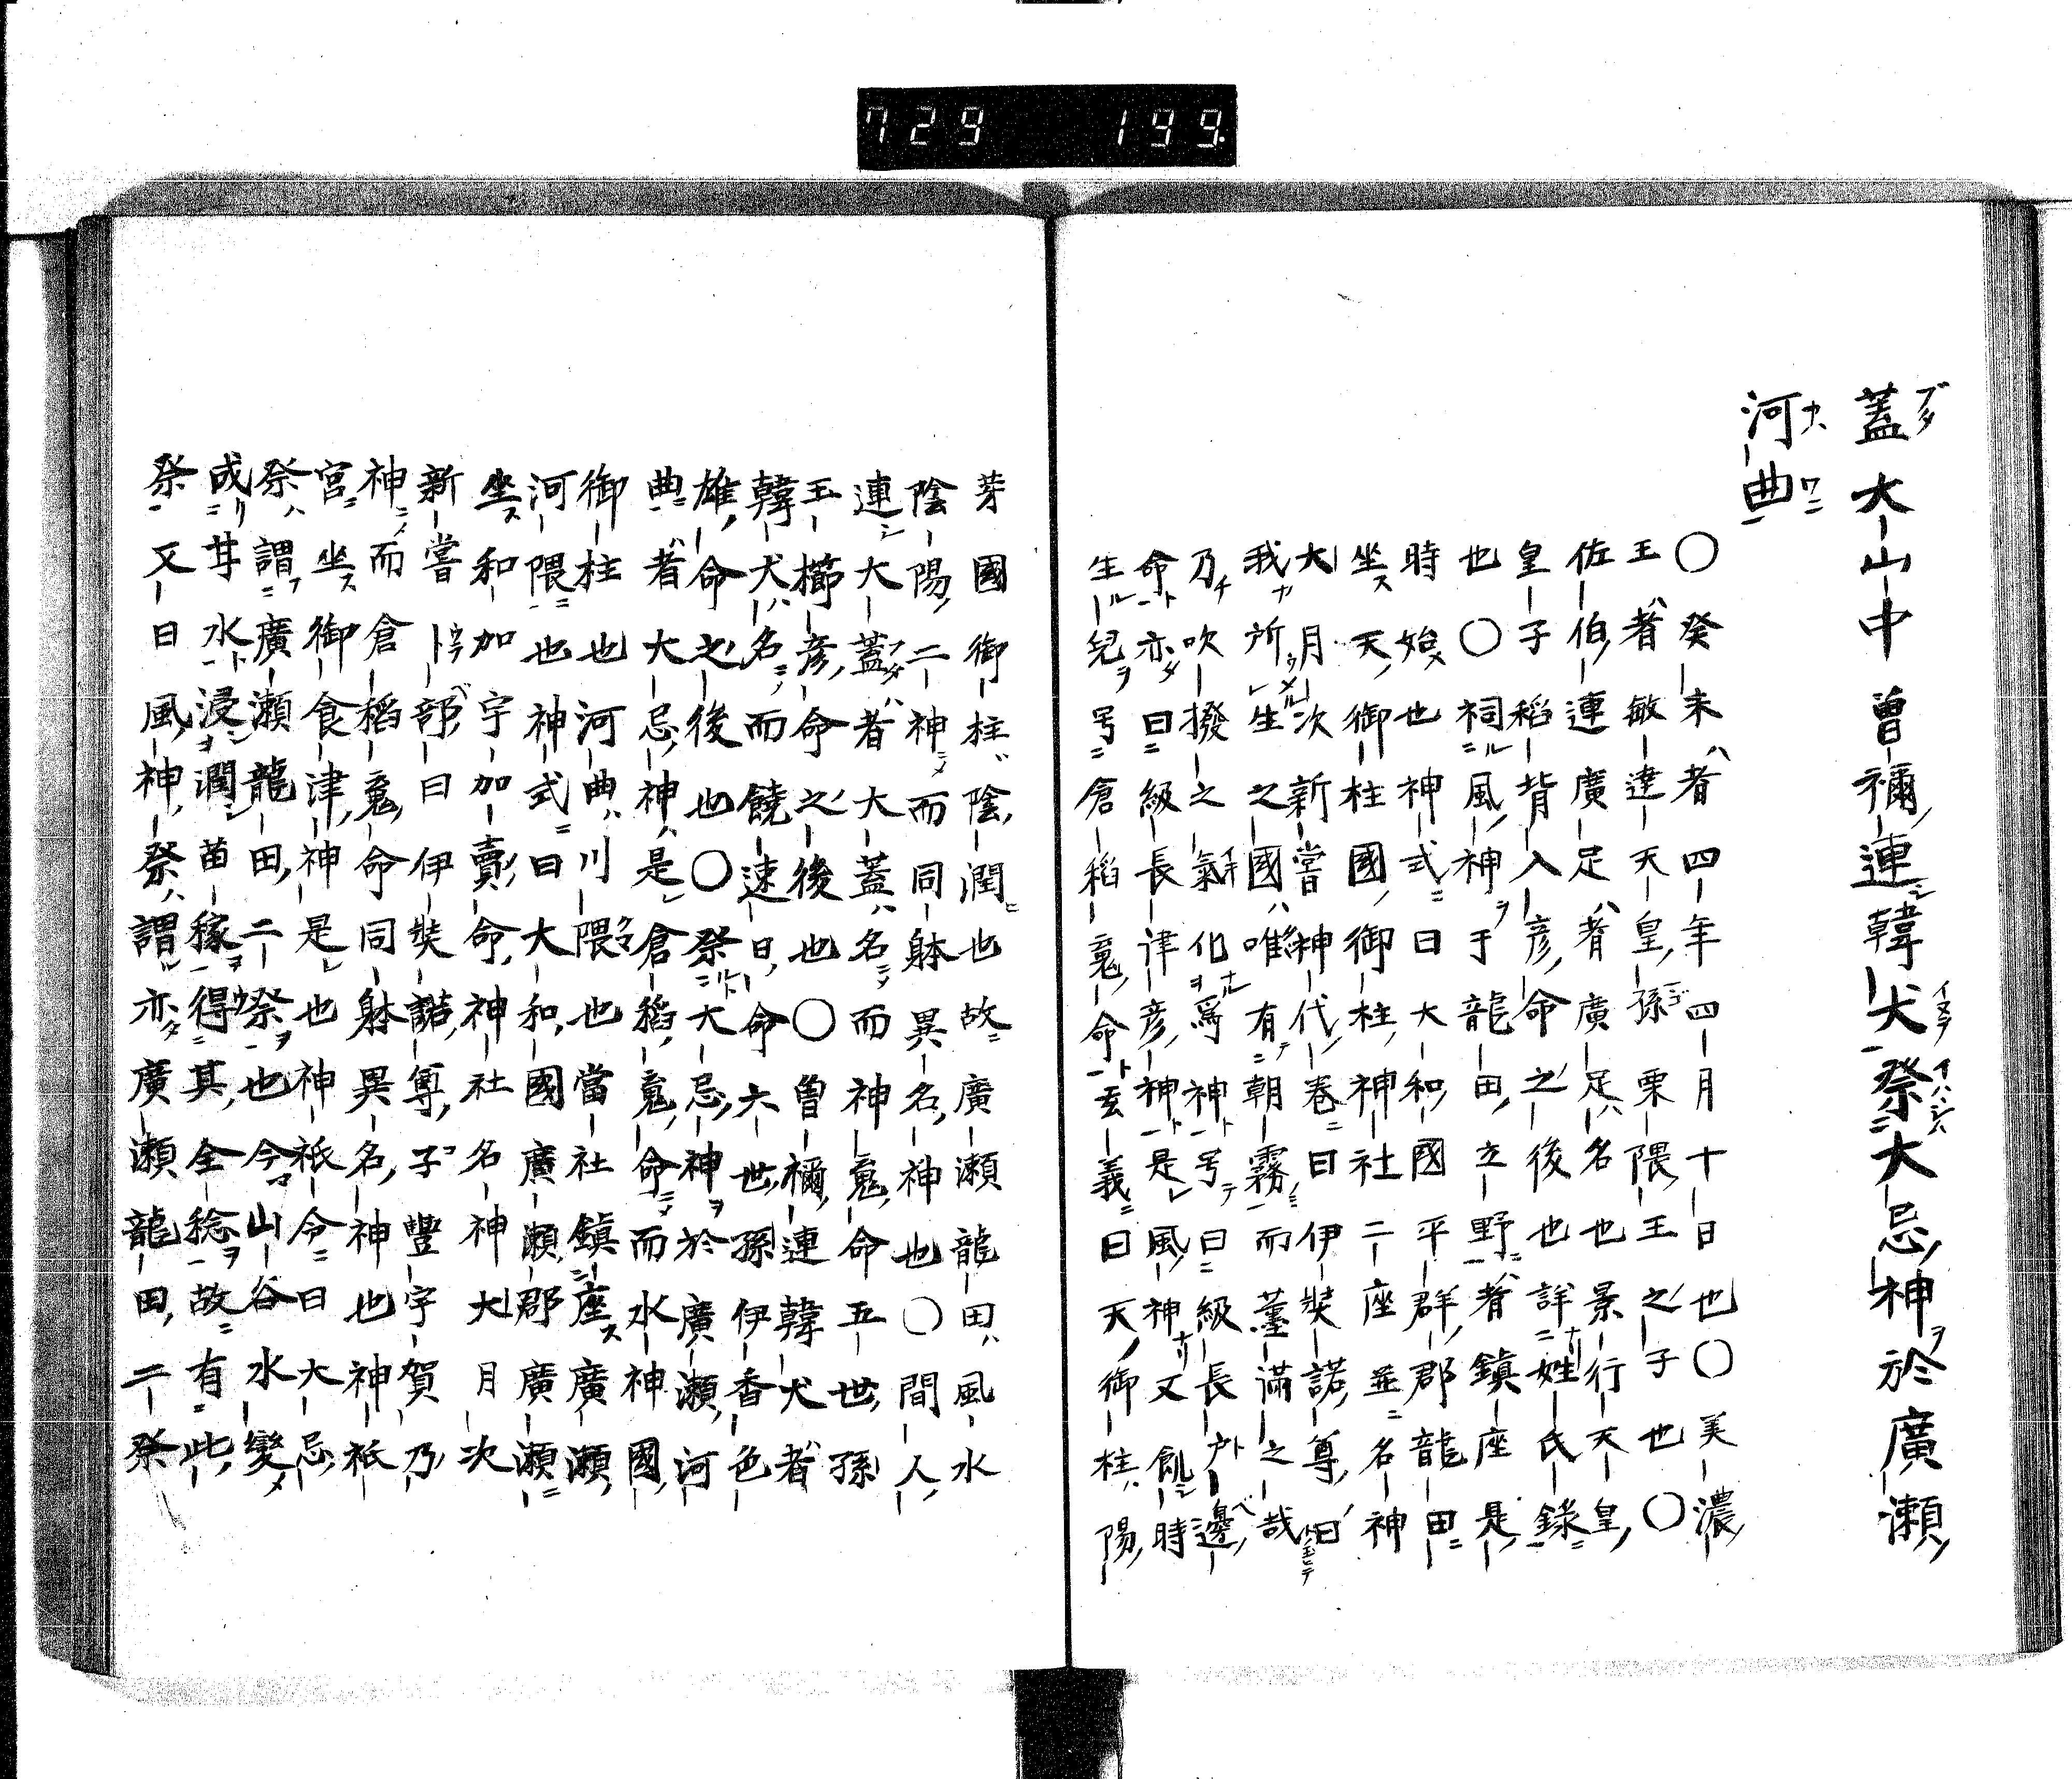 729 199.
蓋大山中曽禰連韓犬祭大忌神於廣瀬
河曲
〇癸未者四年四月十日也〇美濃
王者敏達天皇孫栗隈王之子也〇
佐伯連廣足者廣足名也景行天皇
皇子稻背入彦命之後也詳姓氏録
也〇祠風神于龍田立野者鎮座是
時始也神式曰大和國平群郡龍田
坐天御柱國御柱神社二座並名神
大月次新嘗神代巻曰伊弉諾尊曰
我所生之國唯有朝霧而薫滿之哉
乃吹撥之氣化爲神号曰級長戸邊
命亦曰級長津彦神是風神又飢時
生兒号倉稻䰟命玄義曰天御柱陽
芽國御柱陰潤也故廣瀬龍田風水
陰陽二神而同躰異名神也〇間人
連大蓋者大蓋名而神䰟命五世孫
玉櫛彦命之後也〇曽禰連韓犬者
韓犬名而饒速日命六世孫伊香色
雄命之後也〇祭大忌神於廣瀬河
曲者大忌神是倉稻䰟命而水神國
御柱也河曲川隈也當社鎮座廣瀬
河隈也神式曰大和國廣瀬郡廣瀬
坐和加宇加賣命神社名神大月次
新嘗卜部曰伊弉諾尊子豐宇賀乃
神而倉稻䰟命同躰異名神也神祇
宮坐御食津神是也神祇令曰大忌
祭謂廣瀬龍田二祭也令山谷水變
成甘水浸潤苗稼得其全稔故有此
祭又曰風神祭謂亦廣瀬龍田二祭